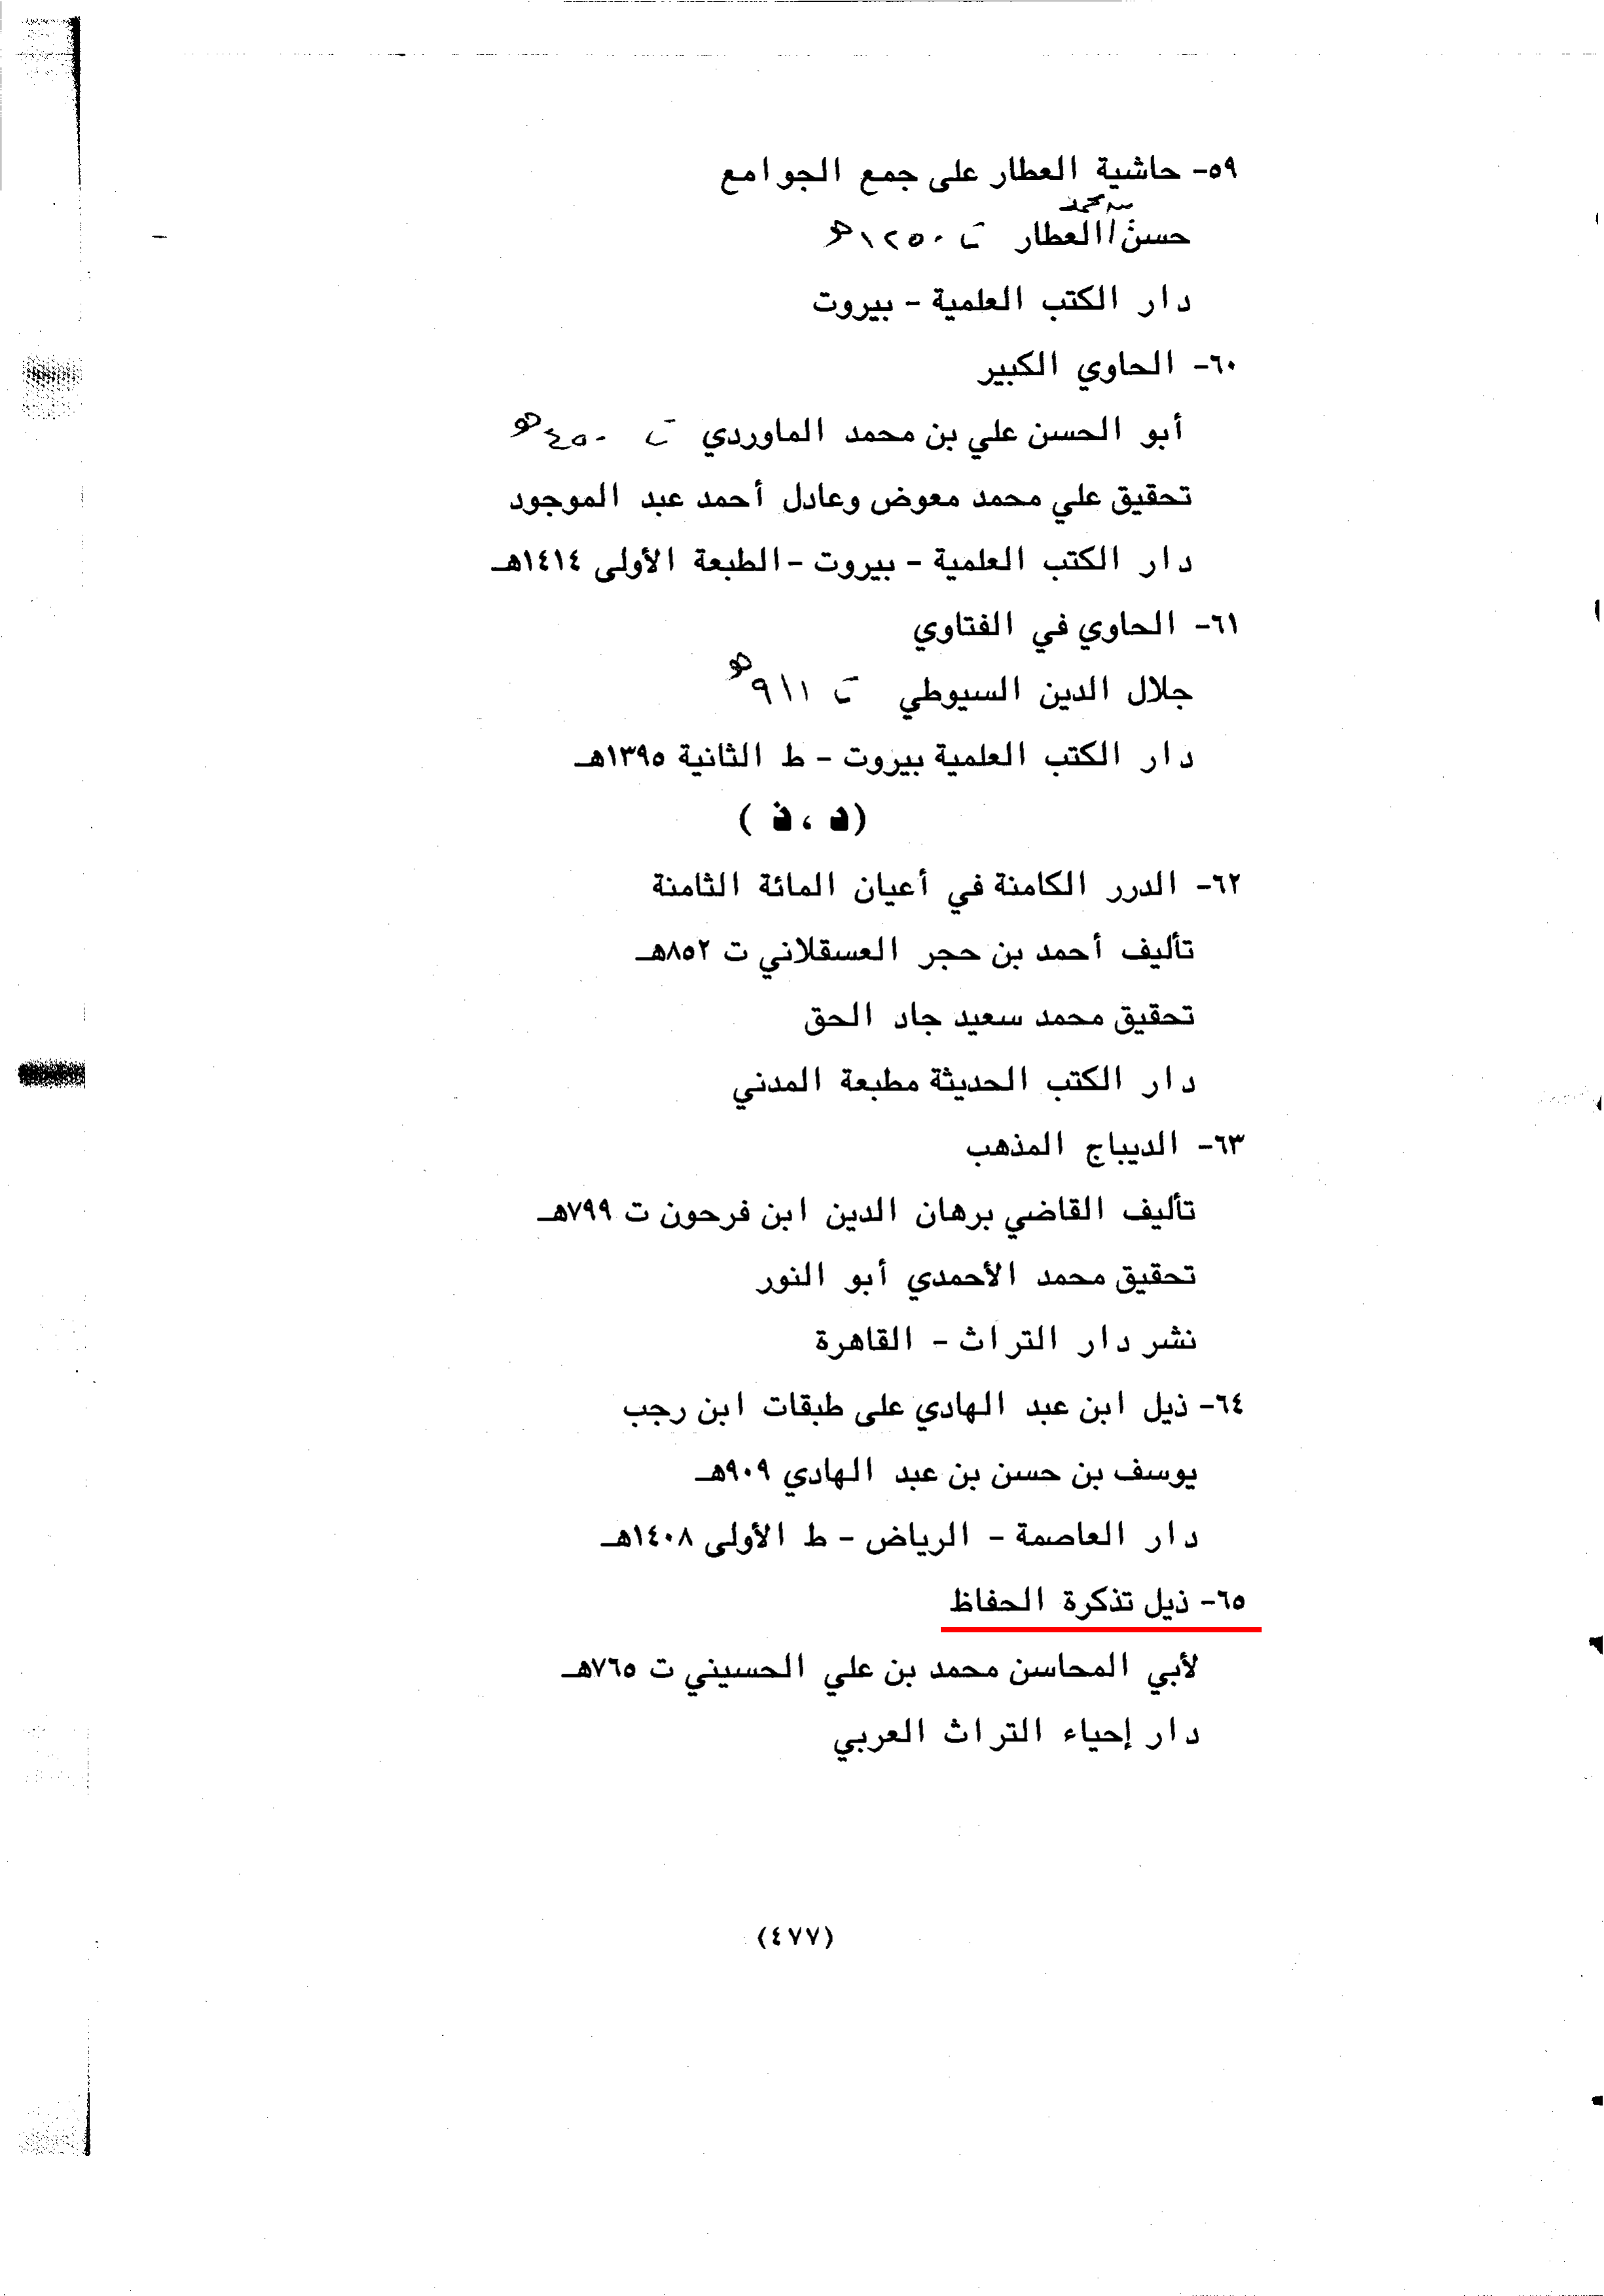 ٥٩- حاشية العطار على جمع الجوامع
بن محمد
حسن/العطار ت ١٢٥٠هـ
دار الكتب العلمية - بيروت
٦٠- الحاوي الكبير
أبو الحسن علي بن محمد الماوردي ت ٤٥٠هـ
تحقيق علي محمد معوض وعادل أحمد عبد الموجود
دار الكتب العلمية - بيروت - الطبعة الأولى ١٤١٤هـ
٦١- الحاوي في الفتاوي
جلال الدين السيوطي ت ٩١١هـ
دار الكتب العلمية بيروت - ط الثانية ١٣٩٥هـ
٦٢- الدرر الكامنة في أعيان المائة الثامنة
تأليف أحمد بن حجر العسقلاني ت ٨٥٢هـ
تحقيق محمد سعيد جاد الحق
دار الكتب الحديثة مطبعة المدني
٦٣- الديباج المذهب
تأليف القاضي برهان الدين ابن فرحون ت ٧٩٩هـ
تحقيق محمد الأحمدي أبو النور
نشر دار التراث - القاهرة
٦٤- ذيل ابن عبد الهادي على طبقات ابن رجب
يوسف بن حسن بن عبد الهادي ٩٠٩هـ
دار العاصمة - الرياض - ط الأولى ١٤٠٨هـ
٦٥- ذيل تذكرة الحفاظ
لأبي المحاسن محمد بن علي الحسيني ت ٧٦٥هـ
دار إحياء التراث العربي
(٤٧٧)